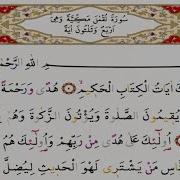 سُورَةُ لُقْمٰنَ مَكِّيَّةٌ وَهِيَ
اَرْبَعٌ وَثَلٰثُونَ اٰيَةً
اللهِ
اٰيَاتُ الْكِتَابِ الْحَكِيمِ هُدًى وَرَحْمَةً
يُقِيمُونَ الصَّلٰوةَ وَيُؤْتُونَ الزَّكٰوةَ وَهُمْ
اُولٰئِكَ عَلٰى هُدًى مِنْ رَبِّهِمْ وَاُولٰئِكَ هُمُ
مَنْ يَشْتَرِى لَهْوَ الْحَدِيثِ لِيُضِلَّ